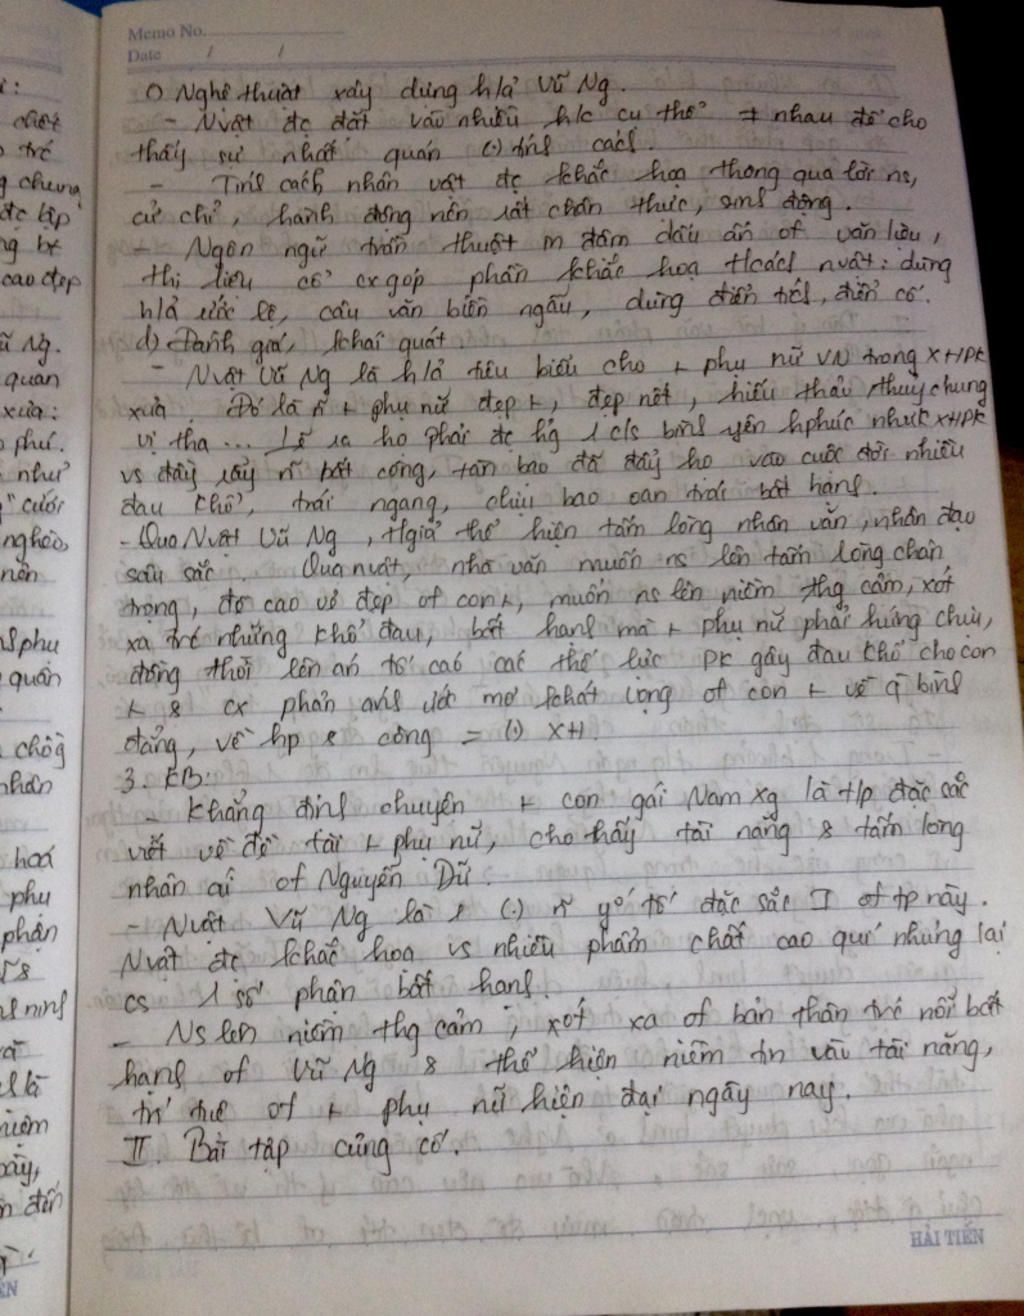 Memo No.
Date / /
c) Nghệ thuật xây dựng h/ả Vũ Ng.
- Nvật đc đặt vào nhiều h/c cụ thể ≠ nhau để cho
thấy sự nhất quán (.) tính cách.
- Tính cách nhân vật đc khắc hoạ thông qua lời ns,
cử chỉ, hành động nên rất chân thực, sinh động.
- Ngôn ngữ trần thuật m đậm dấu ấn of văn
thi liệu cổ cx góp phần khắc hoạ t/cách nvật: dùng
h/ả ước lệ, câu văn biền ngẫu, dùng điển tích, điển cố.
d) Đánh giá, khái quát.
- Nvật Vũ Ng là h/ả tiêu biểu cho + phụ nữ VN trong XHPK
xưa. Đó là n̄ + phụ nữ đẹp +, đẹp nết, hiếu thảo, thuỷ chung
vị tha ... Lẽ ra họ phải đc hg 1 c/s bình yên hphúc XHPK
vs đầy rẫy n̄ bất công, tàn bạo đã đẩy họ vào cuộc đời nhiều
đau khổ, trái ngang, chịu bao oan trái bất hạnh.
- Qua Nvật Vũ Ng, t/giả thể hiện tấm lòng nhân văn, nhân đạo
sâu sắc. Qua nvật, nhà văn muốn ns lên tấm lòng chân
trọng, đề cao vẻ đẹp of con +, muốn ns lên niềm thg cảm, xót
xa trc những khổ đau, bất hạnh mà + phụ nữ phải hứng chịu,
đồng thời lên án tố cáo các thế lực PK gây đau khổ cho con
+ & cx phản ánh ước mơ khát vọng of con + về q̄ bình
đẳng, về hp & công = (.) XH
3. KB:
- Khẳng định chuyện + con gái Nam Xg là t/p đặc sắc
viết về đề tài + phụ nữ, cho thấy tài năng & tấm lòng
nhân ái of Nguyễn Dữ.
- Nvật Vũ Ng là 1 (.) n̄ yº tố đặc sắc I of tp này.
Nvật đc khắc hoạ vs nhiều phẩm chất cao quí nhưng lại
cs 1 số phận bất hạnh.
- Ns lên niềm thg cảm, xót xa of bản thân trc nỗi bất
hạnh of Vũ Ng & thể hiện niềm tin vào tài năng,
trí tuệ of + phụ nữ hiện đại ngày nay.
II. Bài tập củng cố.
HẢI TIẾN